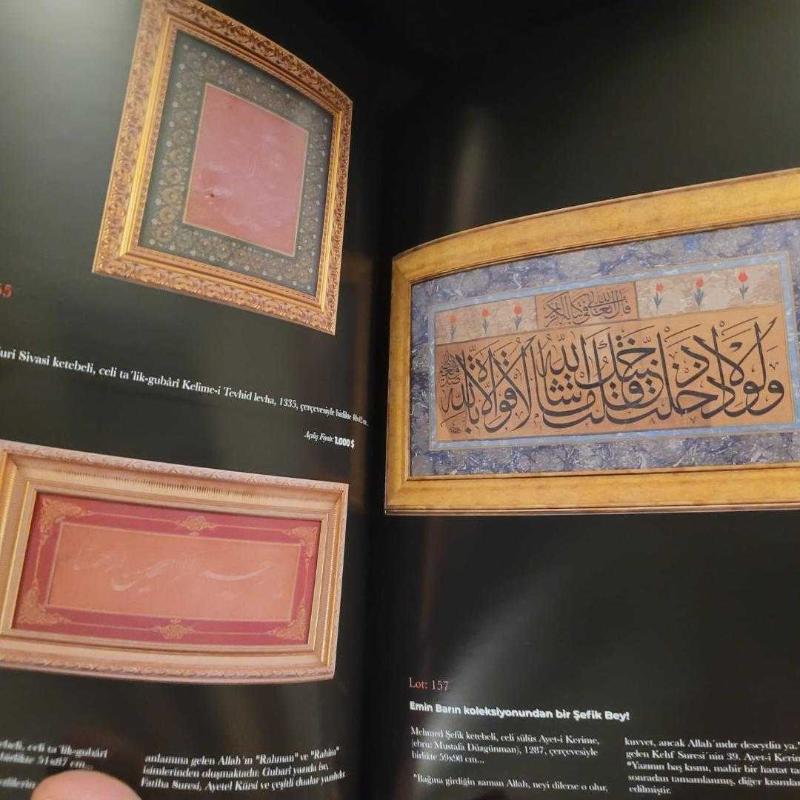 uri Sivasi ketebeli, celi ta'lik-gubârî Kelime-i Tevhid levha, 1335, çerçevesiyle birlikte
Açılış Fiyatı: 1.000 $
celi ta'lik-gubârî
birlikte 51x87 cm...
anlamına gelen Allah'ın "Rahman" ve "Rahim"
isimlerinden oluşmaktadır. Gubari yazıda ise,
Fatiha Suresi, Ayetel Kürsi ve çeşitli dualar yazılıdır.
قال الله تعالى في كتابه الكريم
ولولا إذ دخلت جنتك قلت ما شاء الله لا قوة إلا بالله
Lot: 157
Emin Barın koleksiyonundan bir Şefik Bey!
Mehmed Şefik ketebeli, celi sülüs Ayet-i Kerime,
(ebru: Mustafa Düzgünman), 1287, çerçevesiyle
birlikte 59x98 cm...
"Bağına girdiğin zaman Allah, neyi dilerse o olur,
kuvvet, ancak Allah'ındır deseydin ya."
gelen Kehf Suresi'nin 39. Ayet-i Kerim
"Yazının baş kısmı, mahir bir hattat ta
sonradan tamamlanmış, diğer kısımları
edilmiştir.